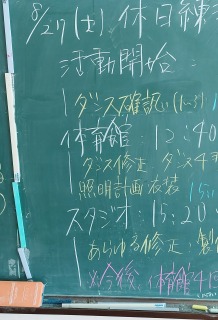 8/27(土) 休日練
活動開始:
ダンス確認(1~3) 1
体育館:12:40
ダンス修正 ダンス4
照明計画 衣装 15:
スタジオ:15:20
あらゆる修正・製
※今後、体育館4回